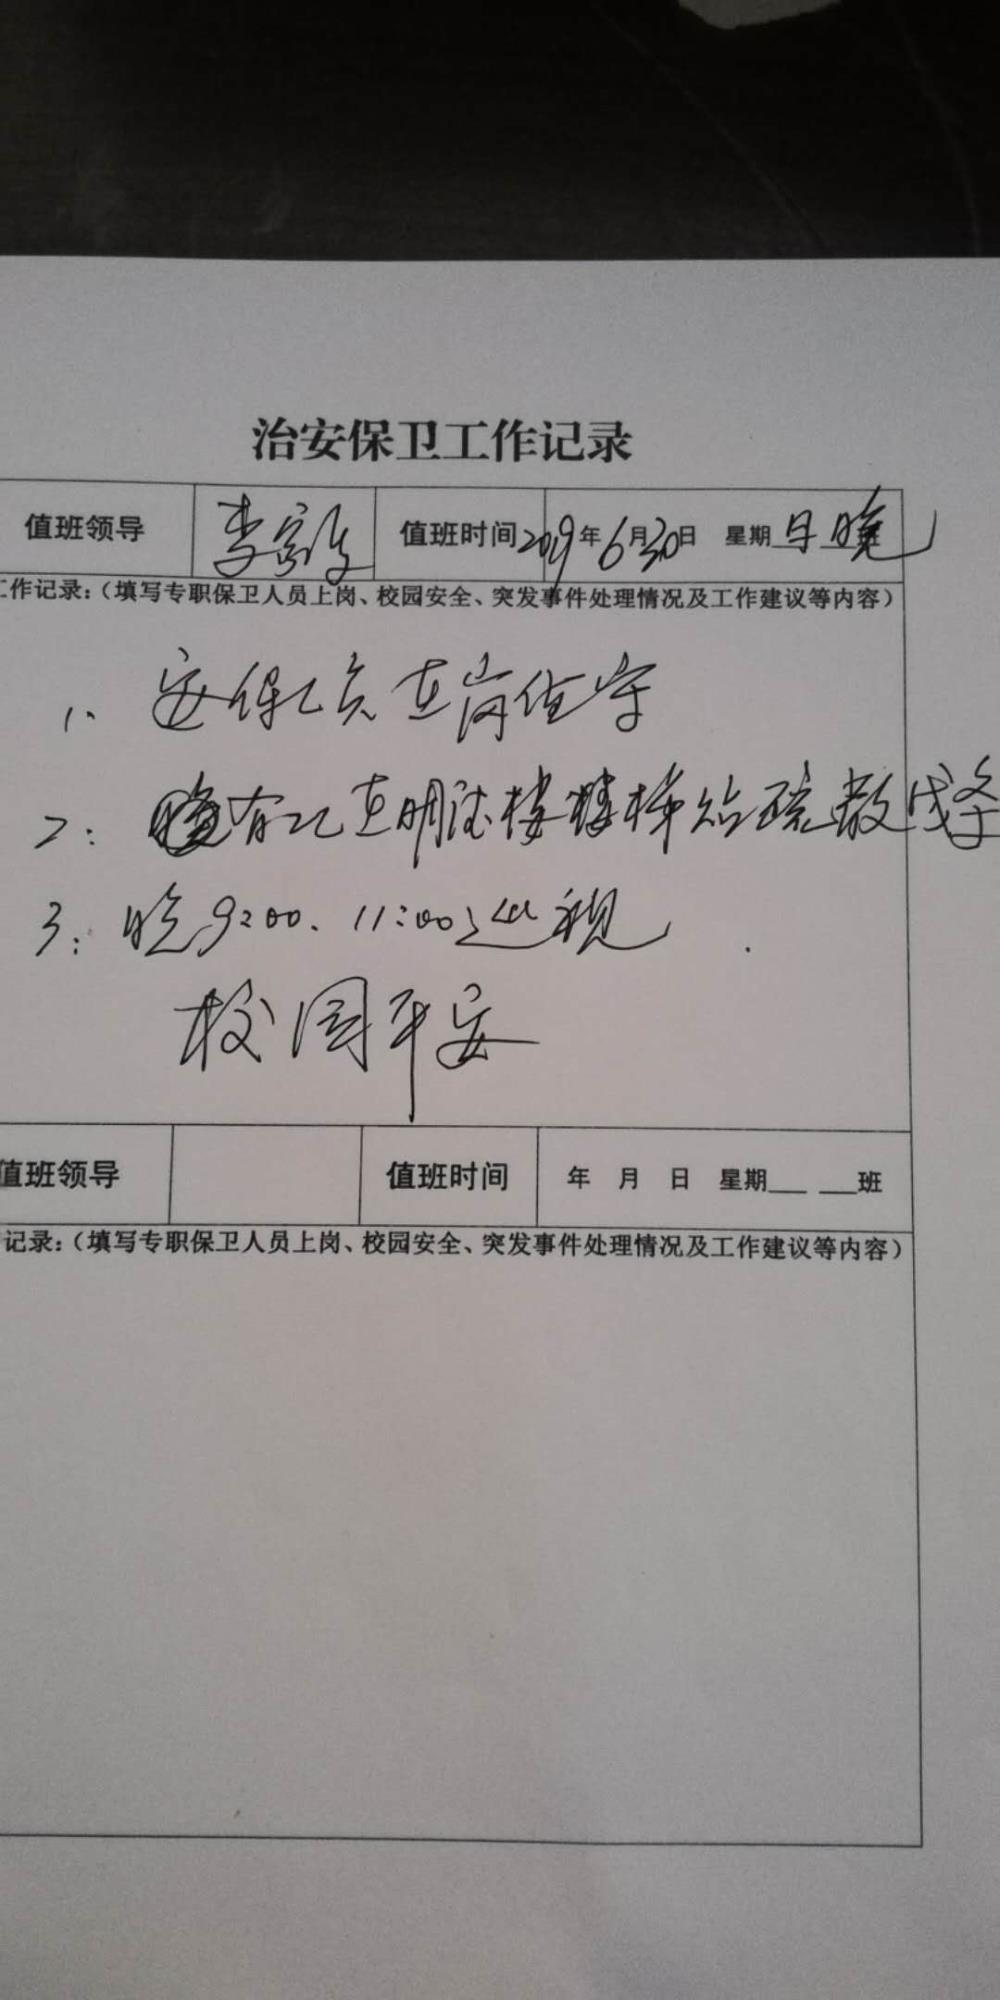 治安保卫工作记录
值班领导 李 值班时间 2019年6月30日 星期日晚
工作记录：（填写专职保卫人员上岗、校园安全、突发事件处理情况及工作建议等内容）
1、安保人员在岗值守
2：晚有工在明德楼楼梯贴疏散线条
3：晚9:00、11:00巡视
校园平安
值班领导 值班时间 年 月 日 星期___ ___班
记录：（填写专职保卫人员上岗、校园安全、突发事件处理情况及工作建议等内容）